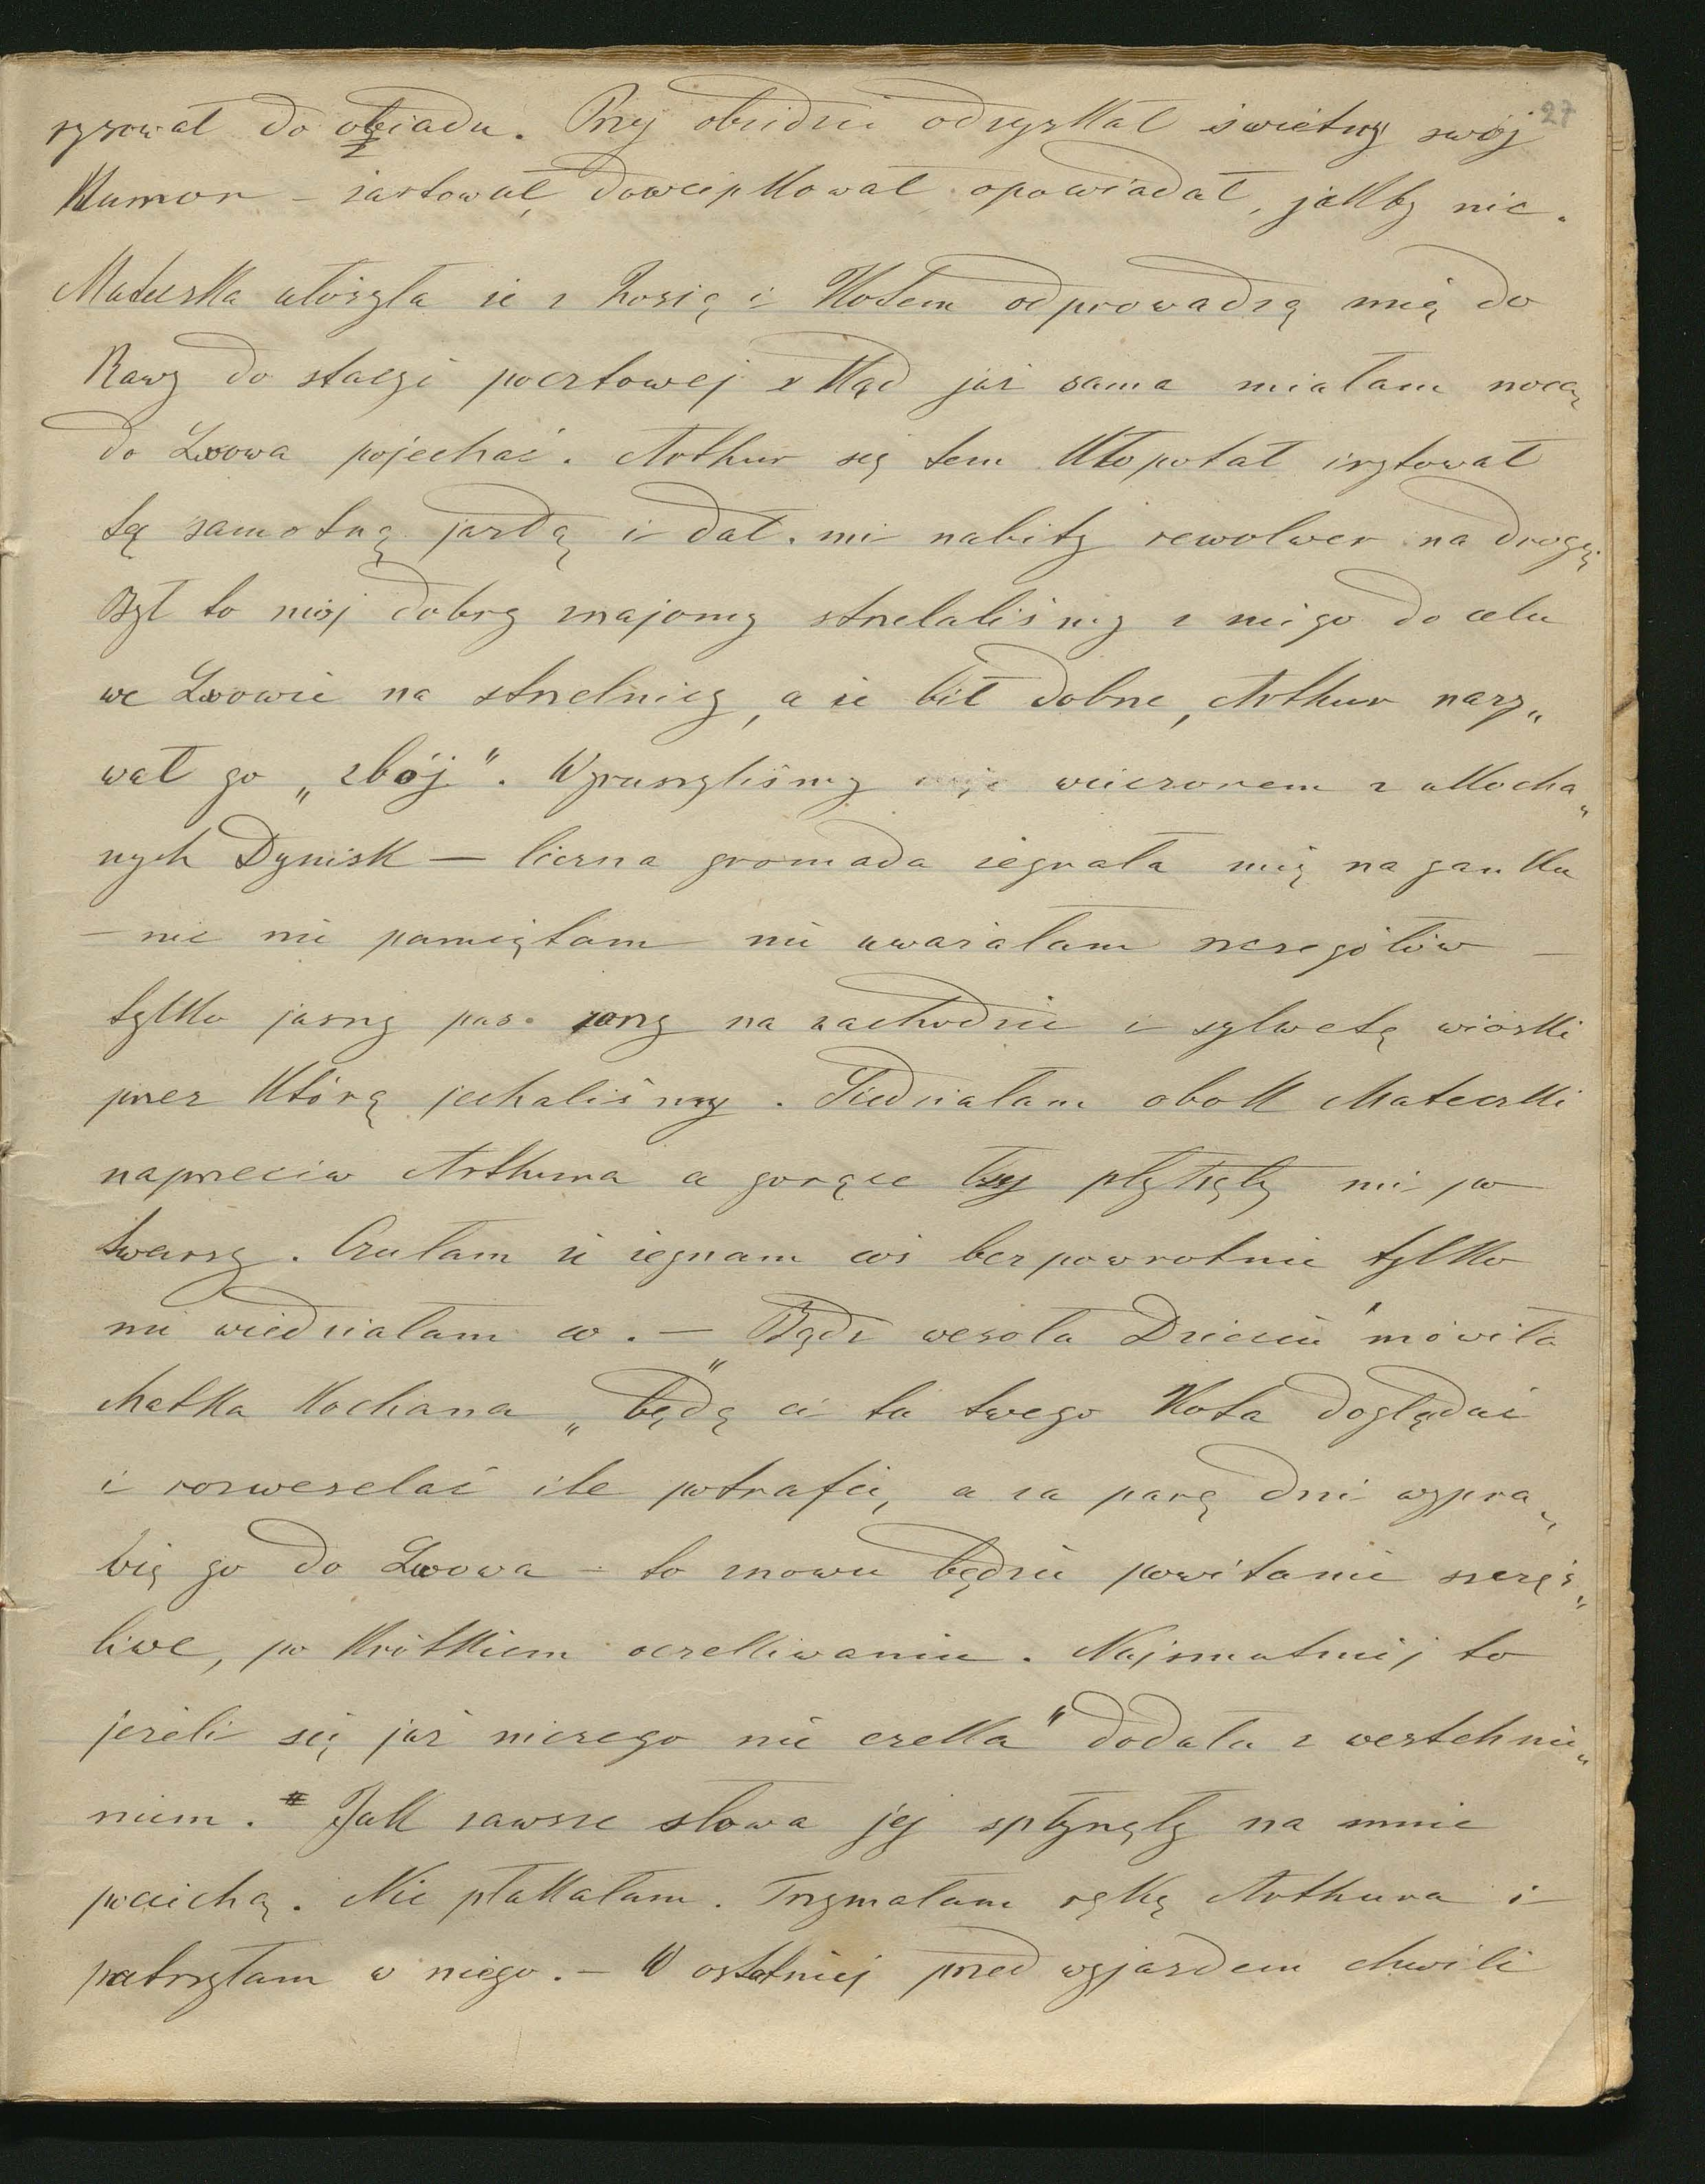 27
rysował do obiadu. Przy obiedzie odzyskał świetny swój
Humor – żartował, dowcipkował opowiadał, jakby nic.
Mateczka ułożyła że z Zosią i Kotem odprowadzą mię do
Rawy do stacyi pocztowej zkąd już sama miałam nocą
do Lwowa pojechać. Arthur się tem kłopotał irytował
tą samotną jazdą i dał mi nabity rewolwer na drogę.
Był to mój dobry znajomy strzelaliśmy z niego do celu
we Lwowie na strzelnicy, a że bił dobrze, Arthur nazy„
wał go „zbój". Wyruszyliśmy wieczorem z ukocha„
nych Dynisk – liczna gromada żegnała mię na ganku
– nic nie pamiętam nie uważałam szczegółów –
tylko jasny pas zorzy na zachodzie i sylwetę wioski
przez którą jechaliśmy. Siedziałam obok Mateczki
naprzeciw Arthura a gorące łzy płynęły mi po
twarzy. Czułam że żegnam coś bezpowrotnie tylko
nie wiedziałam co. – „Bądź wesoła Dziecię" mówiła
Matka kochana „będę ci tu twego Kota doglądać
i rozweselać ile potrafię, a za parę dni wypra„
wię go do Lwowa – to znowu będzie powitanie szczęś„
liwe, po krótkiem oczekiwaniu. Najsmutniej to
jeżeli się już niczego nie czeka" dodała z westchnie„
niem. Jak zawsze słowa jej spłynęły na mnie
pociechą. Nie płakałam. Trzymałam rękę Arthura i
patrzyłam w niego. – W ostatniej przed wyjazdem chwili